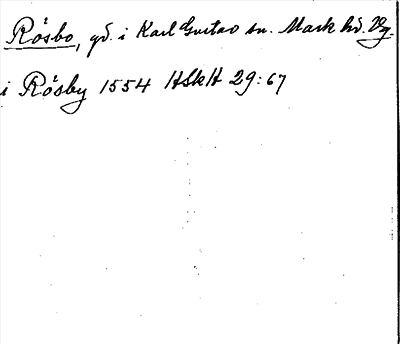 Rösbo, gd. i Karl Gustav sn. Mark hd. Vg.
i Rösby 1554 HSkH 29:67